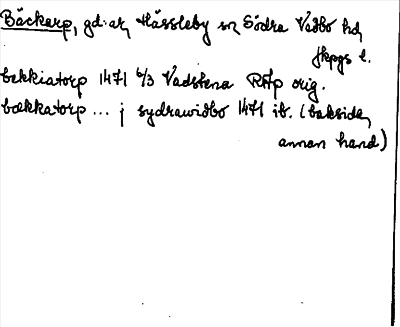 Bäckarp, gd:ar, Hässleby sn Södra Vedbo hd,
Jkpgs l.
bekkiatorp 1471 6/3 Vadstena RAp orig.
bækkatorp ... j sydrawidbo 1471 ib. (baksidan,
annan hand)